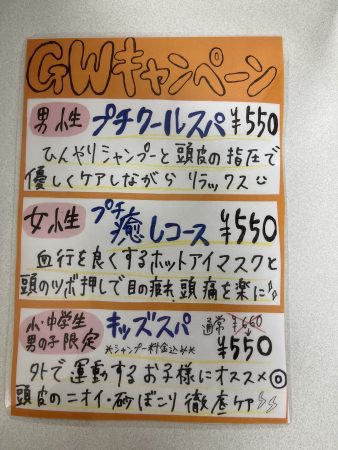 GWキャンペーン
男性 プチクールスパ ¥550
ひんやりシャンプーと頭皮の指圧で
優しくケアしながら リラックス
女性 プチ癒しコース ¥550
血行を良くするホットアイマスクと
頭のツボ押しで目の疲れ、頭痛を楽に
小・中学生
男の子限定 キッズスパ 通常 ¥660
*シャンプー料金込み* ¥550
外で運動するお子様にオススメ◎
頭皮のニオイ・砂ぼこり徹底ケア